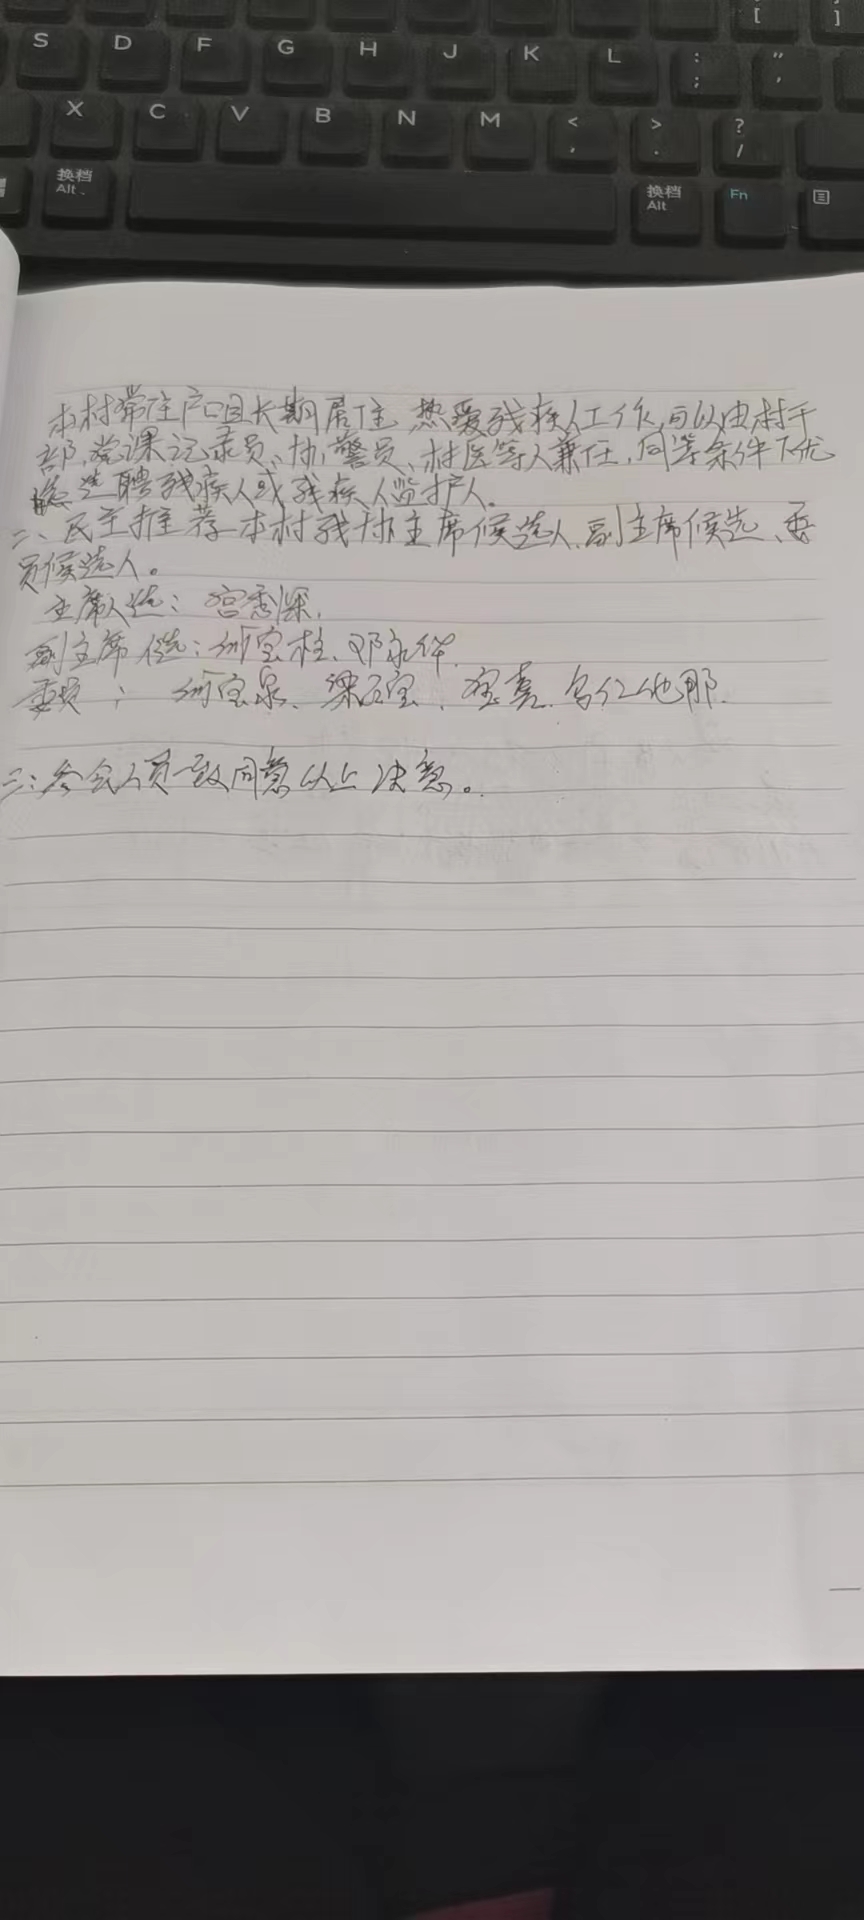 [
]
S D F G H J K L : ; " '
X C V B N M < , > . ? /
换档 Alt 换档 Alt Fn
本村常住户口且长期居住,热爱残疾人工作,可以由村干
部、党课记录员、协警员、村医等人兼任,同等条件下优
选聘残疾人或残疾人监护人。
二、民主推荐本村残协主席候选人、副主席候选、委
员候选人。
主席人选:宫秀深.
副主席候选:何宝柱、邓永伴.
委员:何宝泉、梁石宝、宝喜、乌仁他那.
三:参会人员一致同意以上决意。